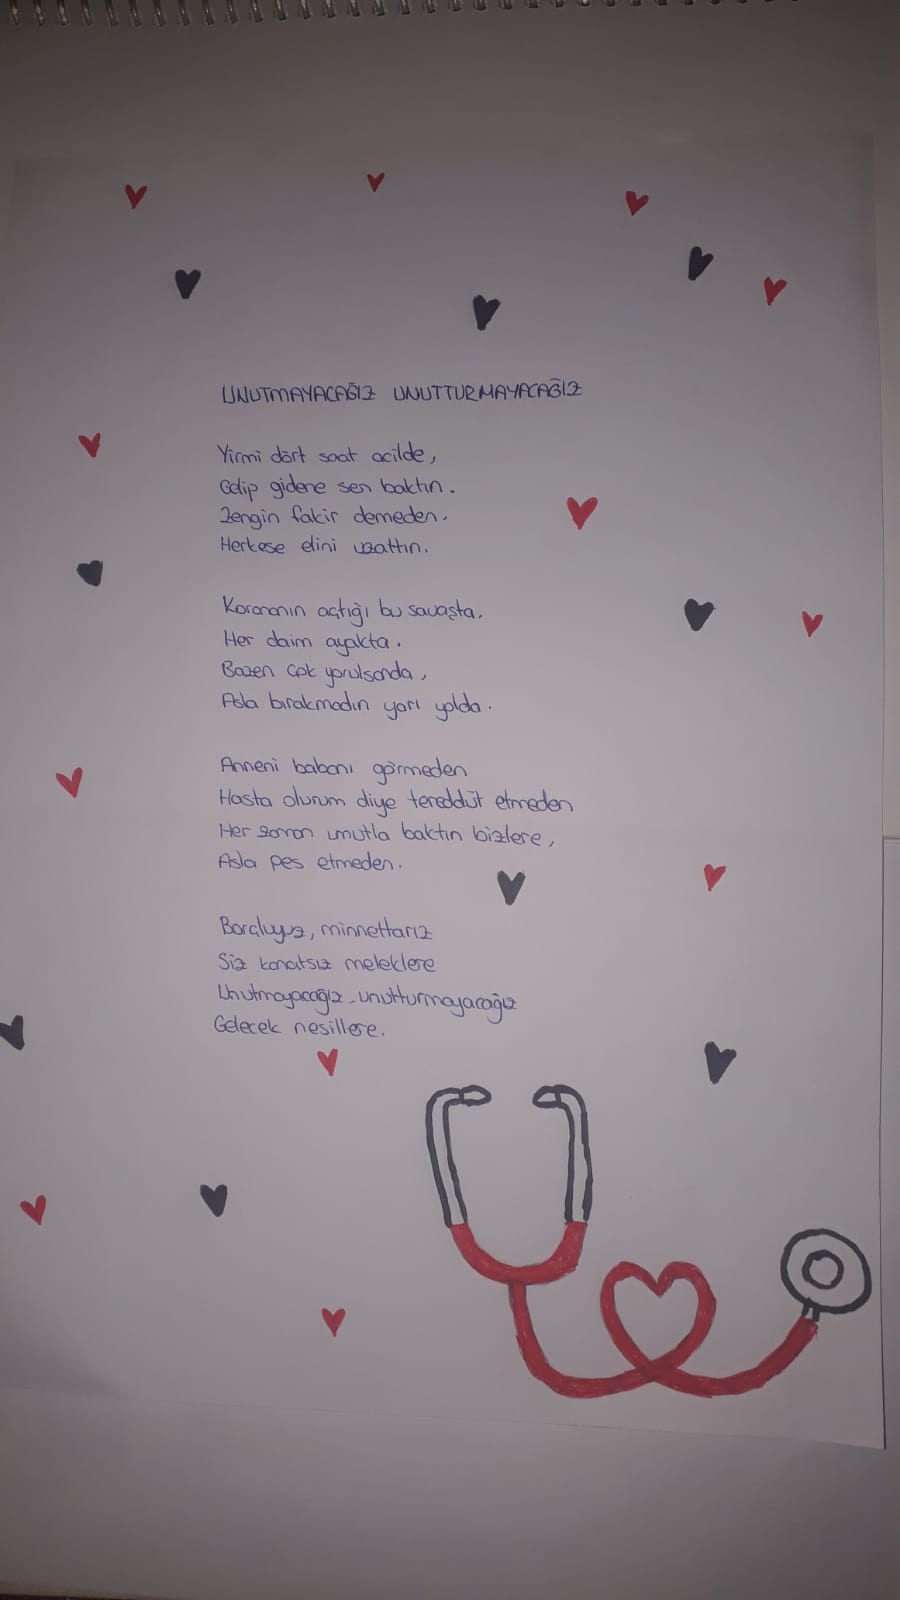 UNUTMAYACAĞIZ UNUTTURMAYACAĞIZ
Yirmi dört saat acilde,
Gelip gidene sen baktın.
Zengin fakir demeden.
Herkese elini uzattın.
Koronanın açtığı bu savaşta.
Her daim ayakta.
Bazen çok yorulsanda,
Asla bırakmadın yarı yolda.
Anneni babanı görmeden
Hasta olurum diye tereddüt etmeden
Her zaman umutla baktın bizlere,
Asla pes etmeden.
Borçluyuz, minnettarız
Siz kanatsız meleklere
Unutmayacağız, unutturmayacağız
Gelecek nesillere.